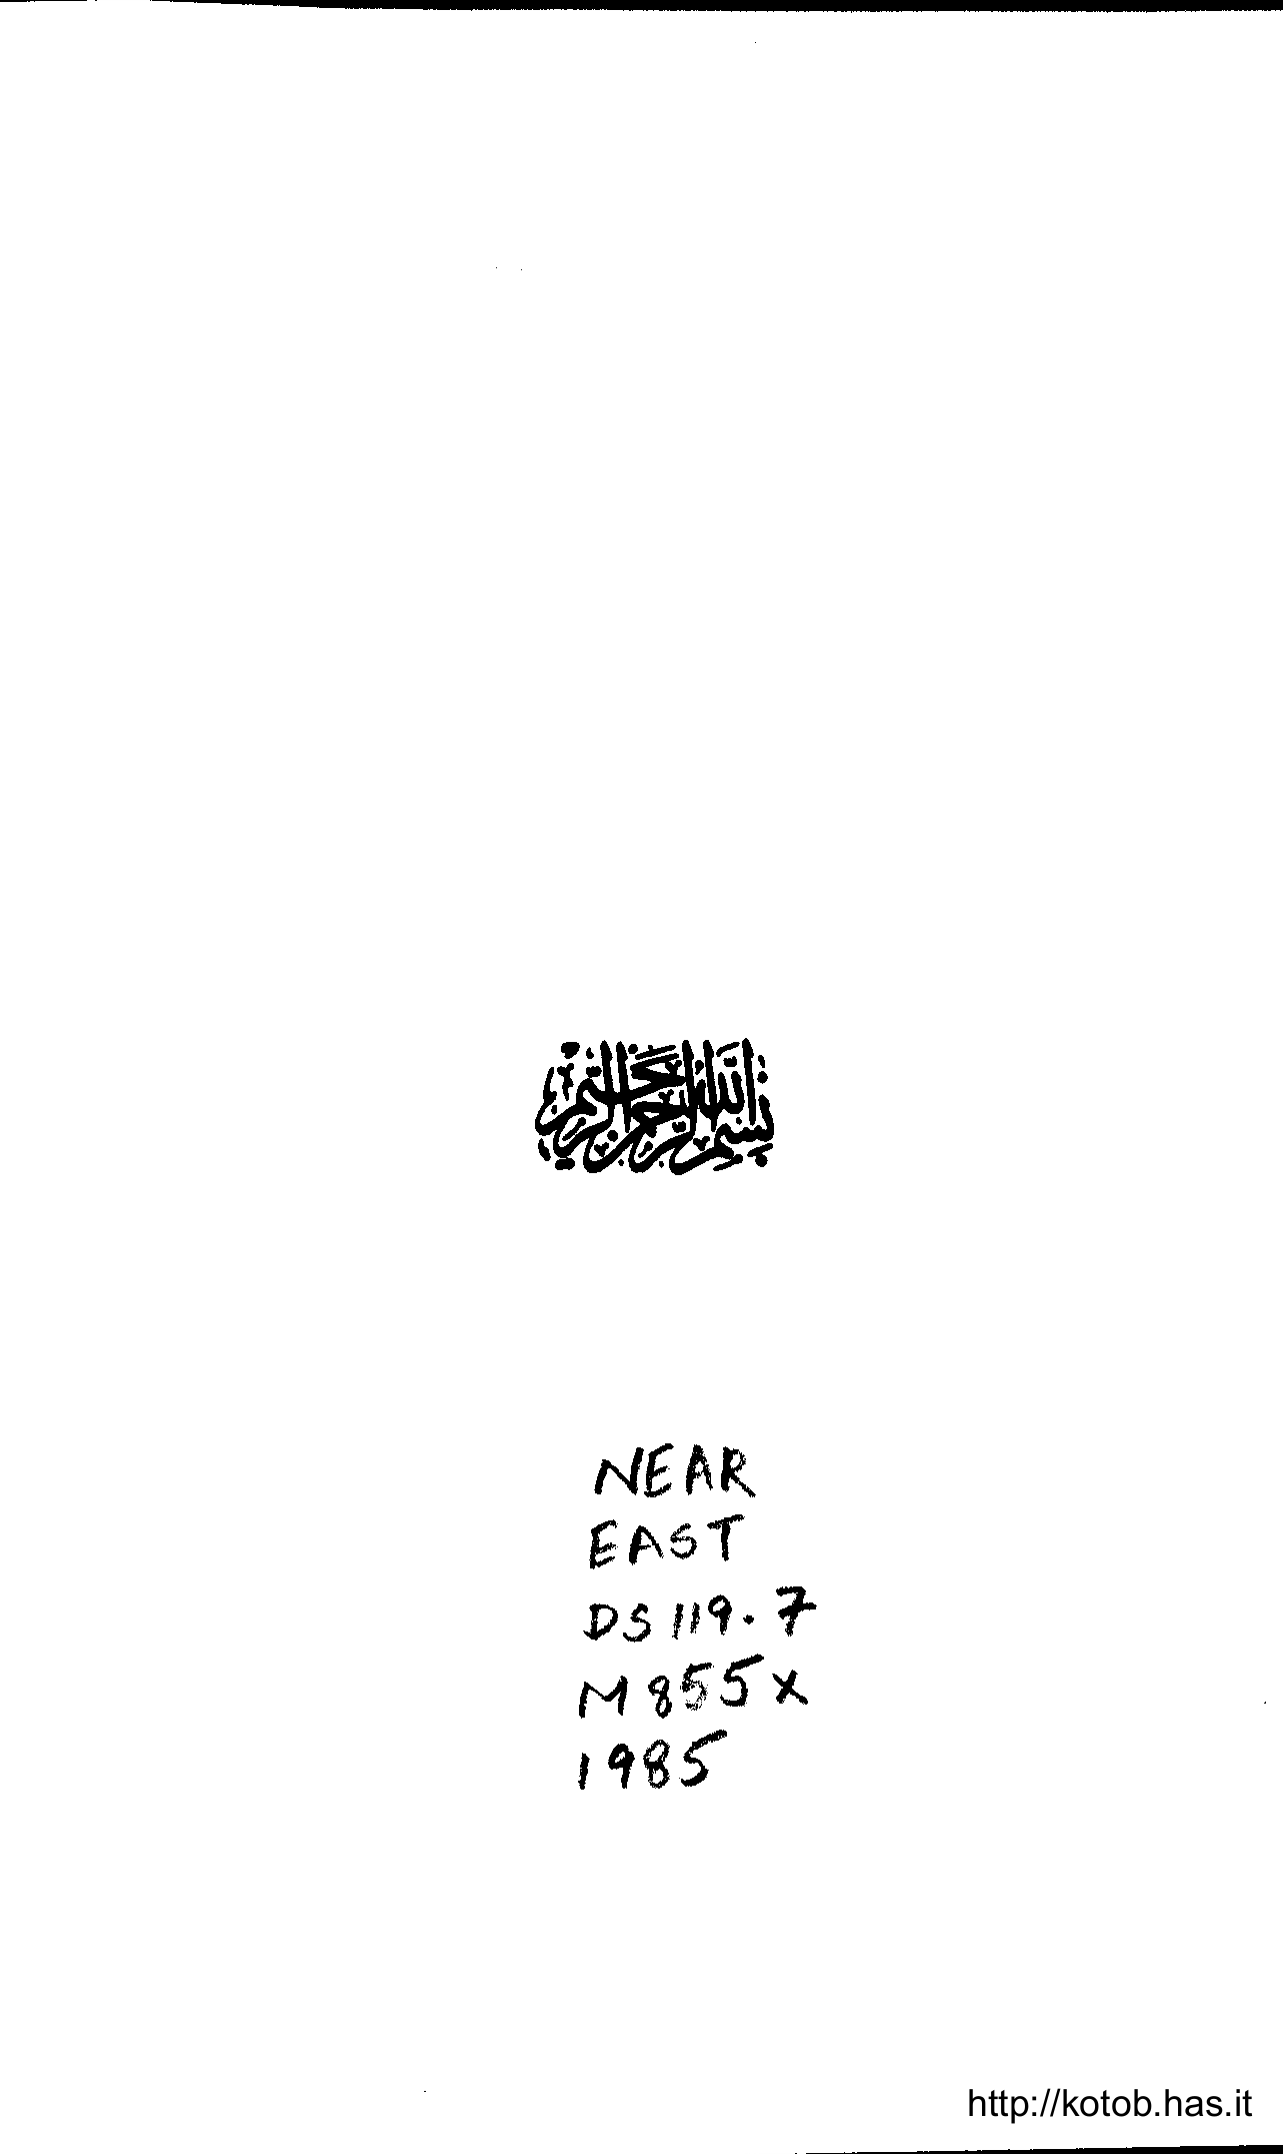 بِسْمِ اللَّهِ الرَّحْمَٰنِ الرَّحِيمِ
NEAR
EAST
DS 119.7
M 855 x
1985
http://kotob.has.it